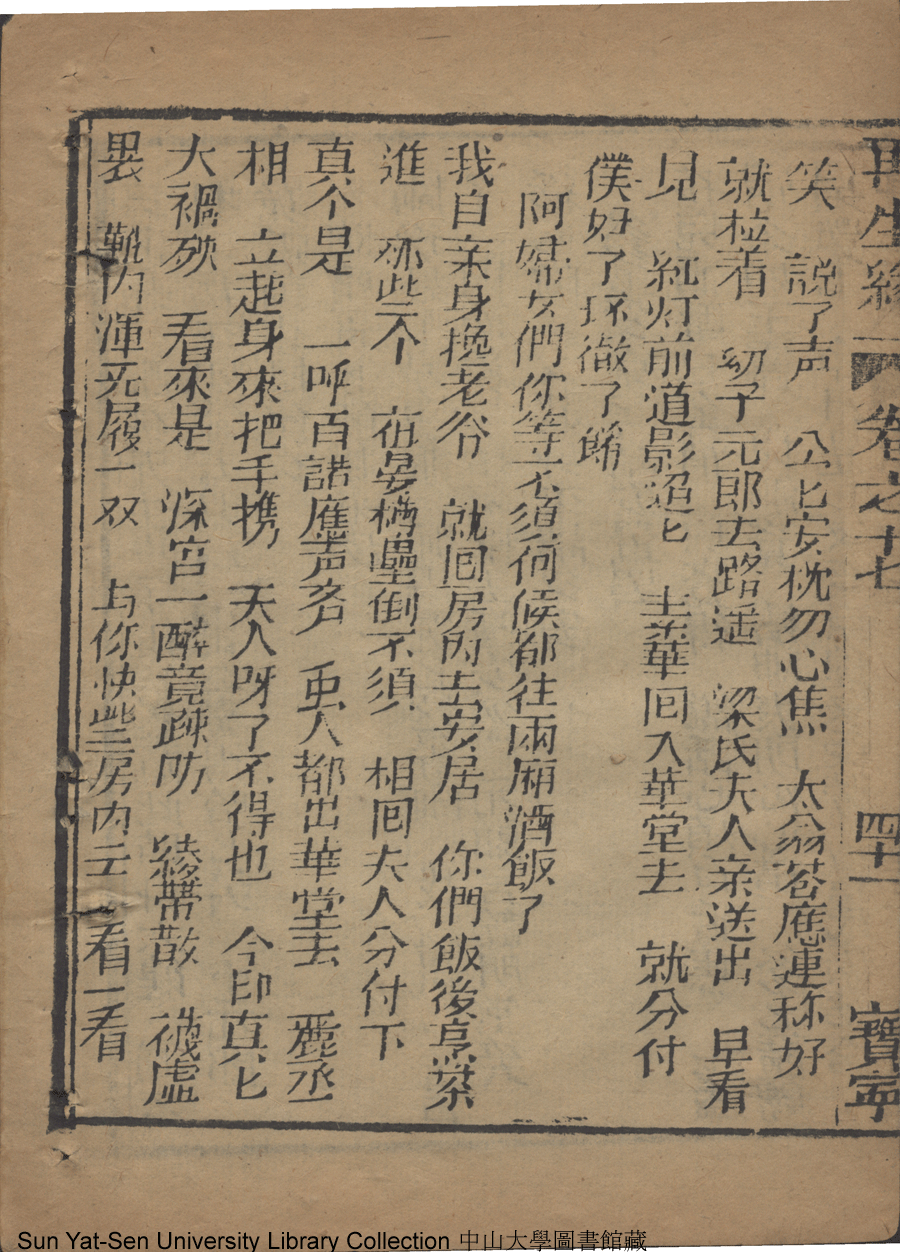 再生緣 卷之十七 四十一 寶寧
笑 説了声 公匕安枕勿心焦 太翁荅應連称好
就拉着 幼子元郎去路遥 梁氏夫人亲送出 早看
見 紅灯前道影迢匕 素華回入華堂去 就分付
僕妇了环徹了餚
阿婦女們你等不須伺候都往兩廂酒飯了
我自亲身挽老爷 就回房内去安居 你們飯後烹茶
進 那些个 夜晏樽壘倒不須 相国夫人分付下
真个是 一呼百諾應声齐 重人都出華堂去 麗丞
相 立起身來把手携 夫人呀了不得也 今印真匕
大禍殃 看來是 深宫一醉竟疎防 綾帶散 襪虚
裹 靴内渾无履一双 与你快些房内去 看一看
Sun Yat-Sen University Library Collection 中山大學圖書館藏